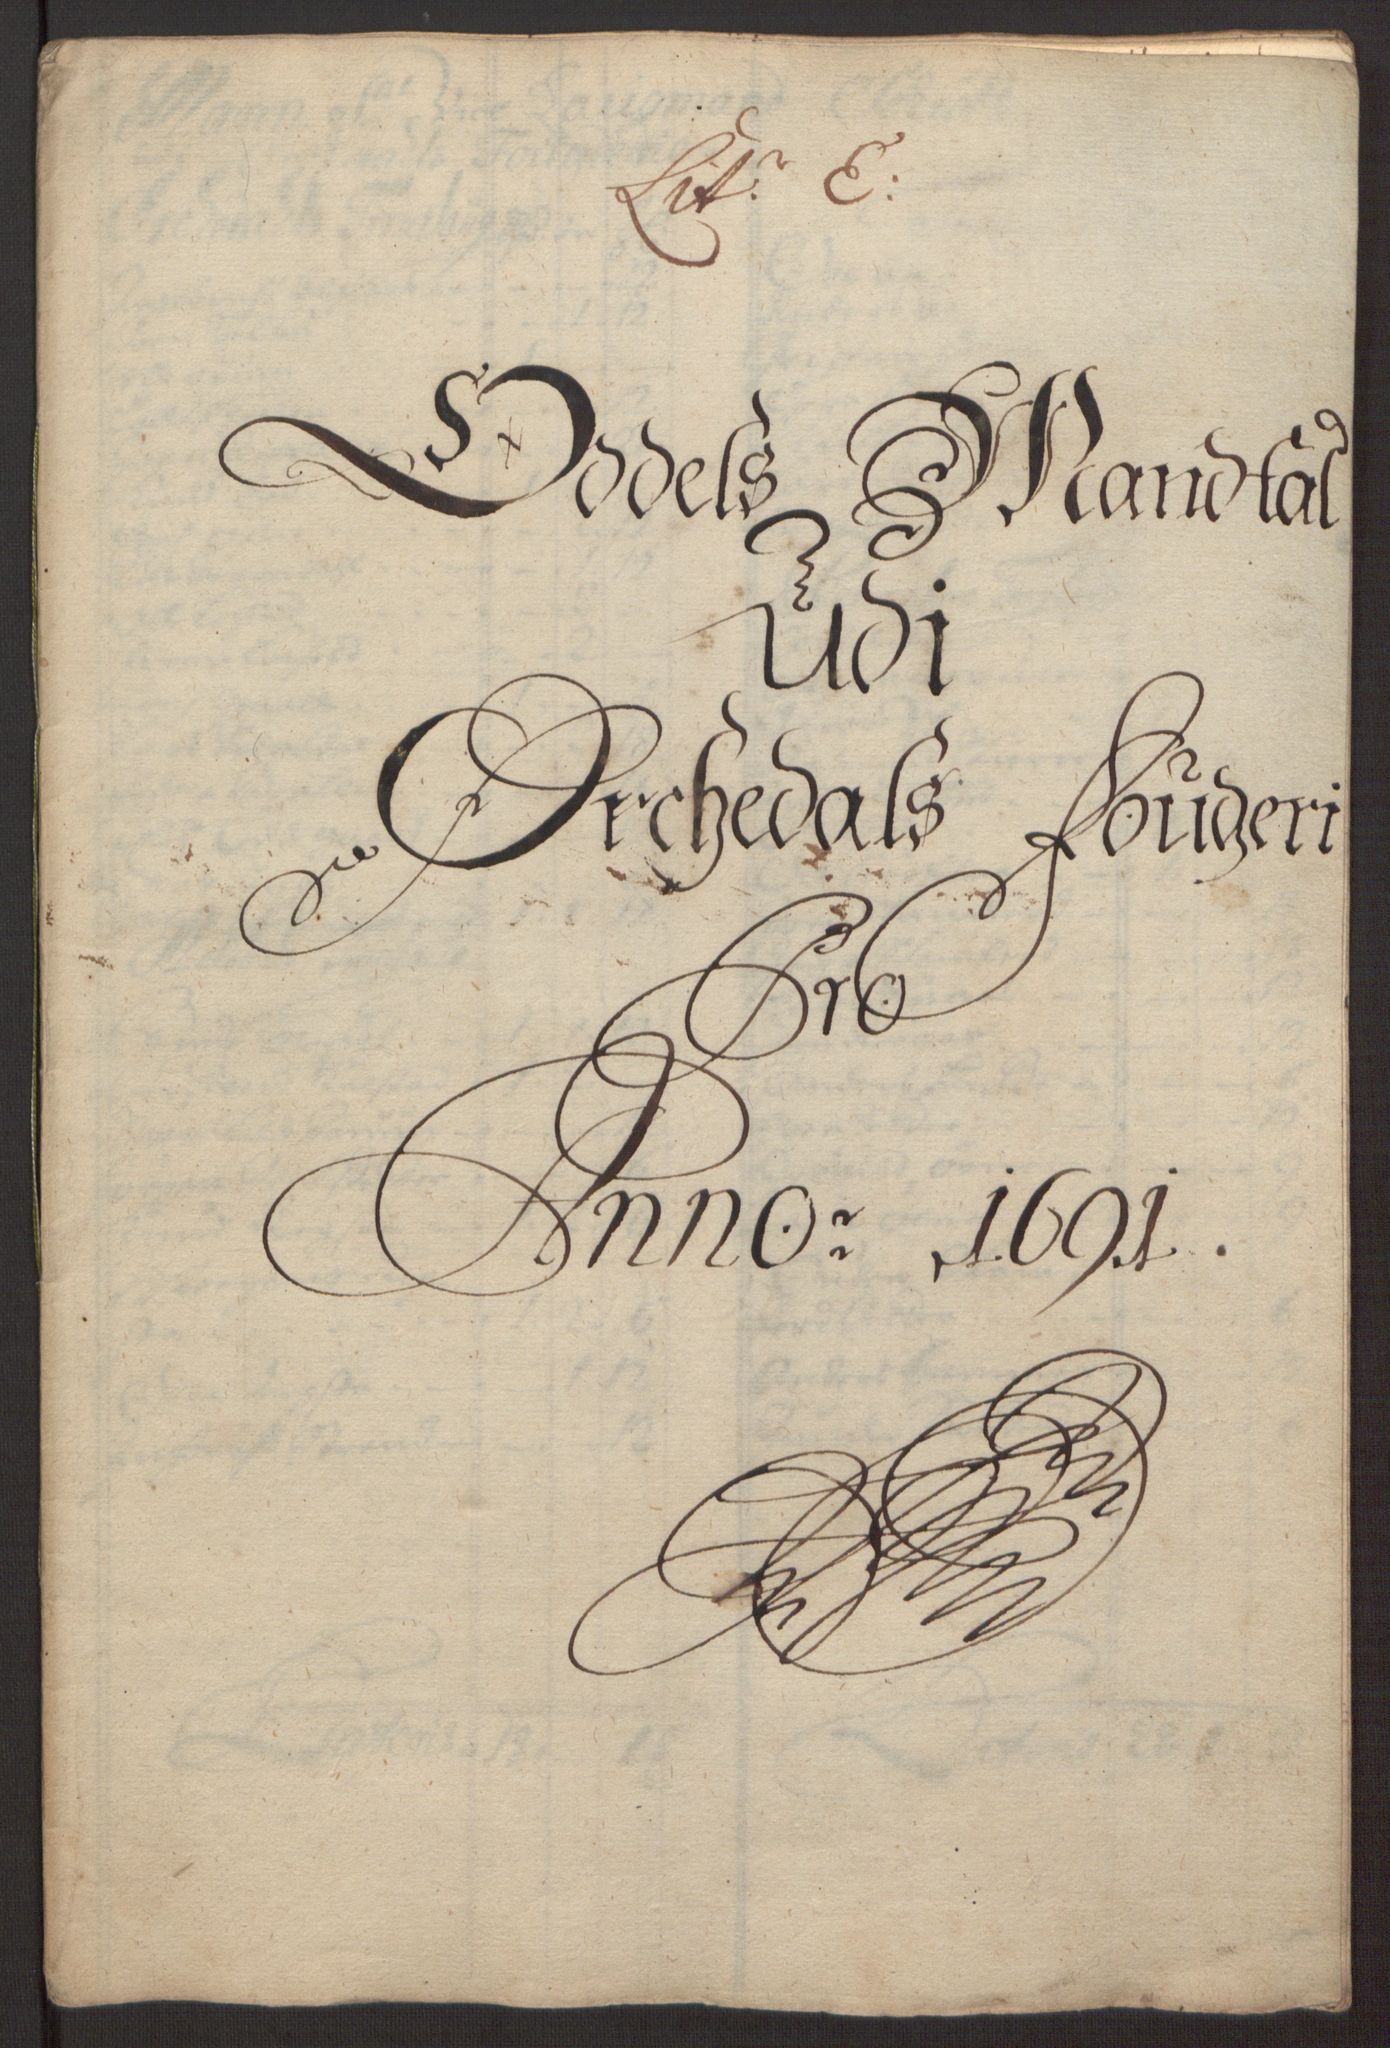 Litr: E:
Oddels Mandtal
Udi
Orchedals fougderi
Pro
Anno: 1691.